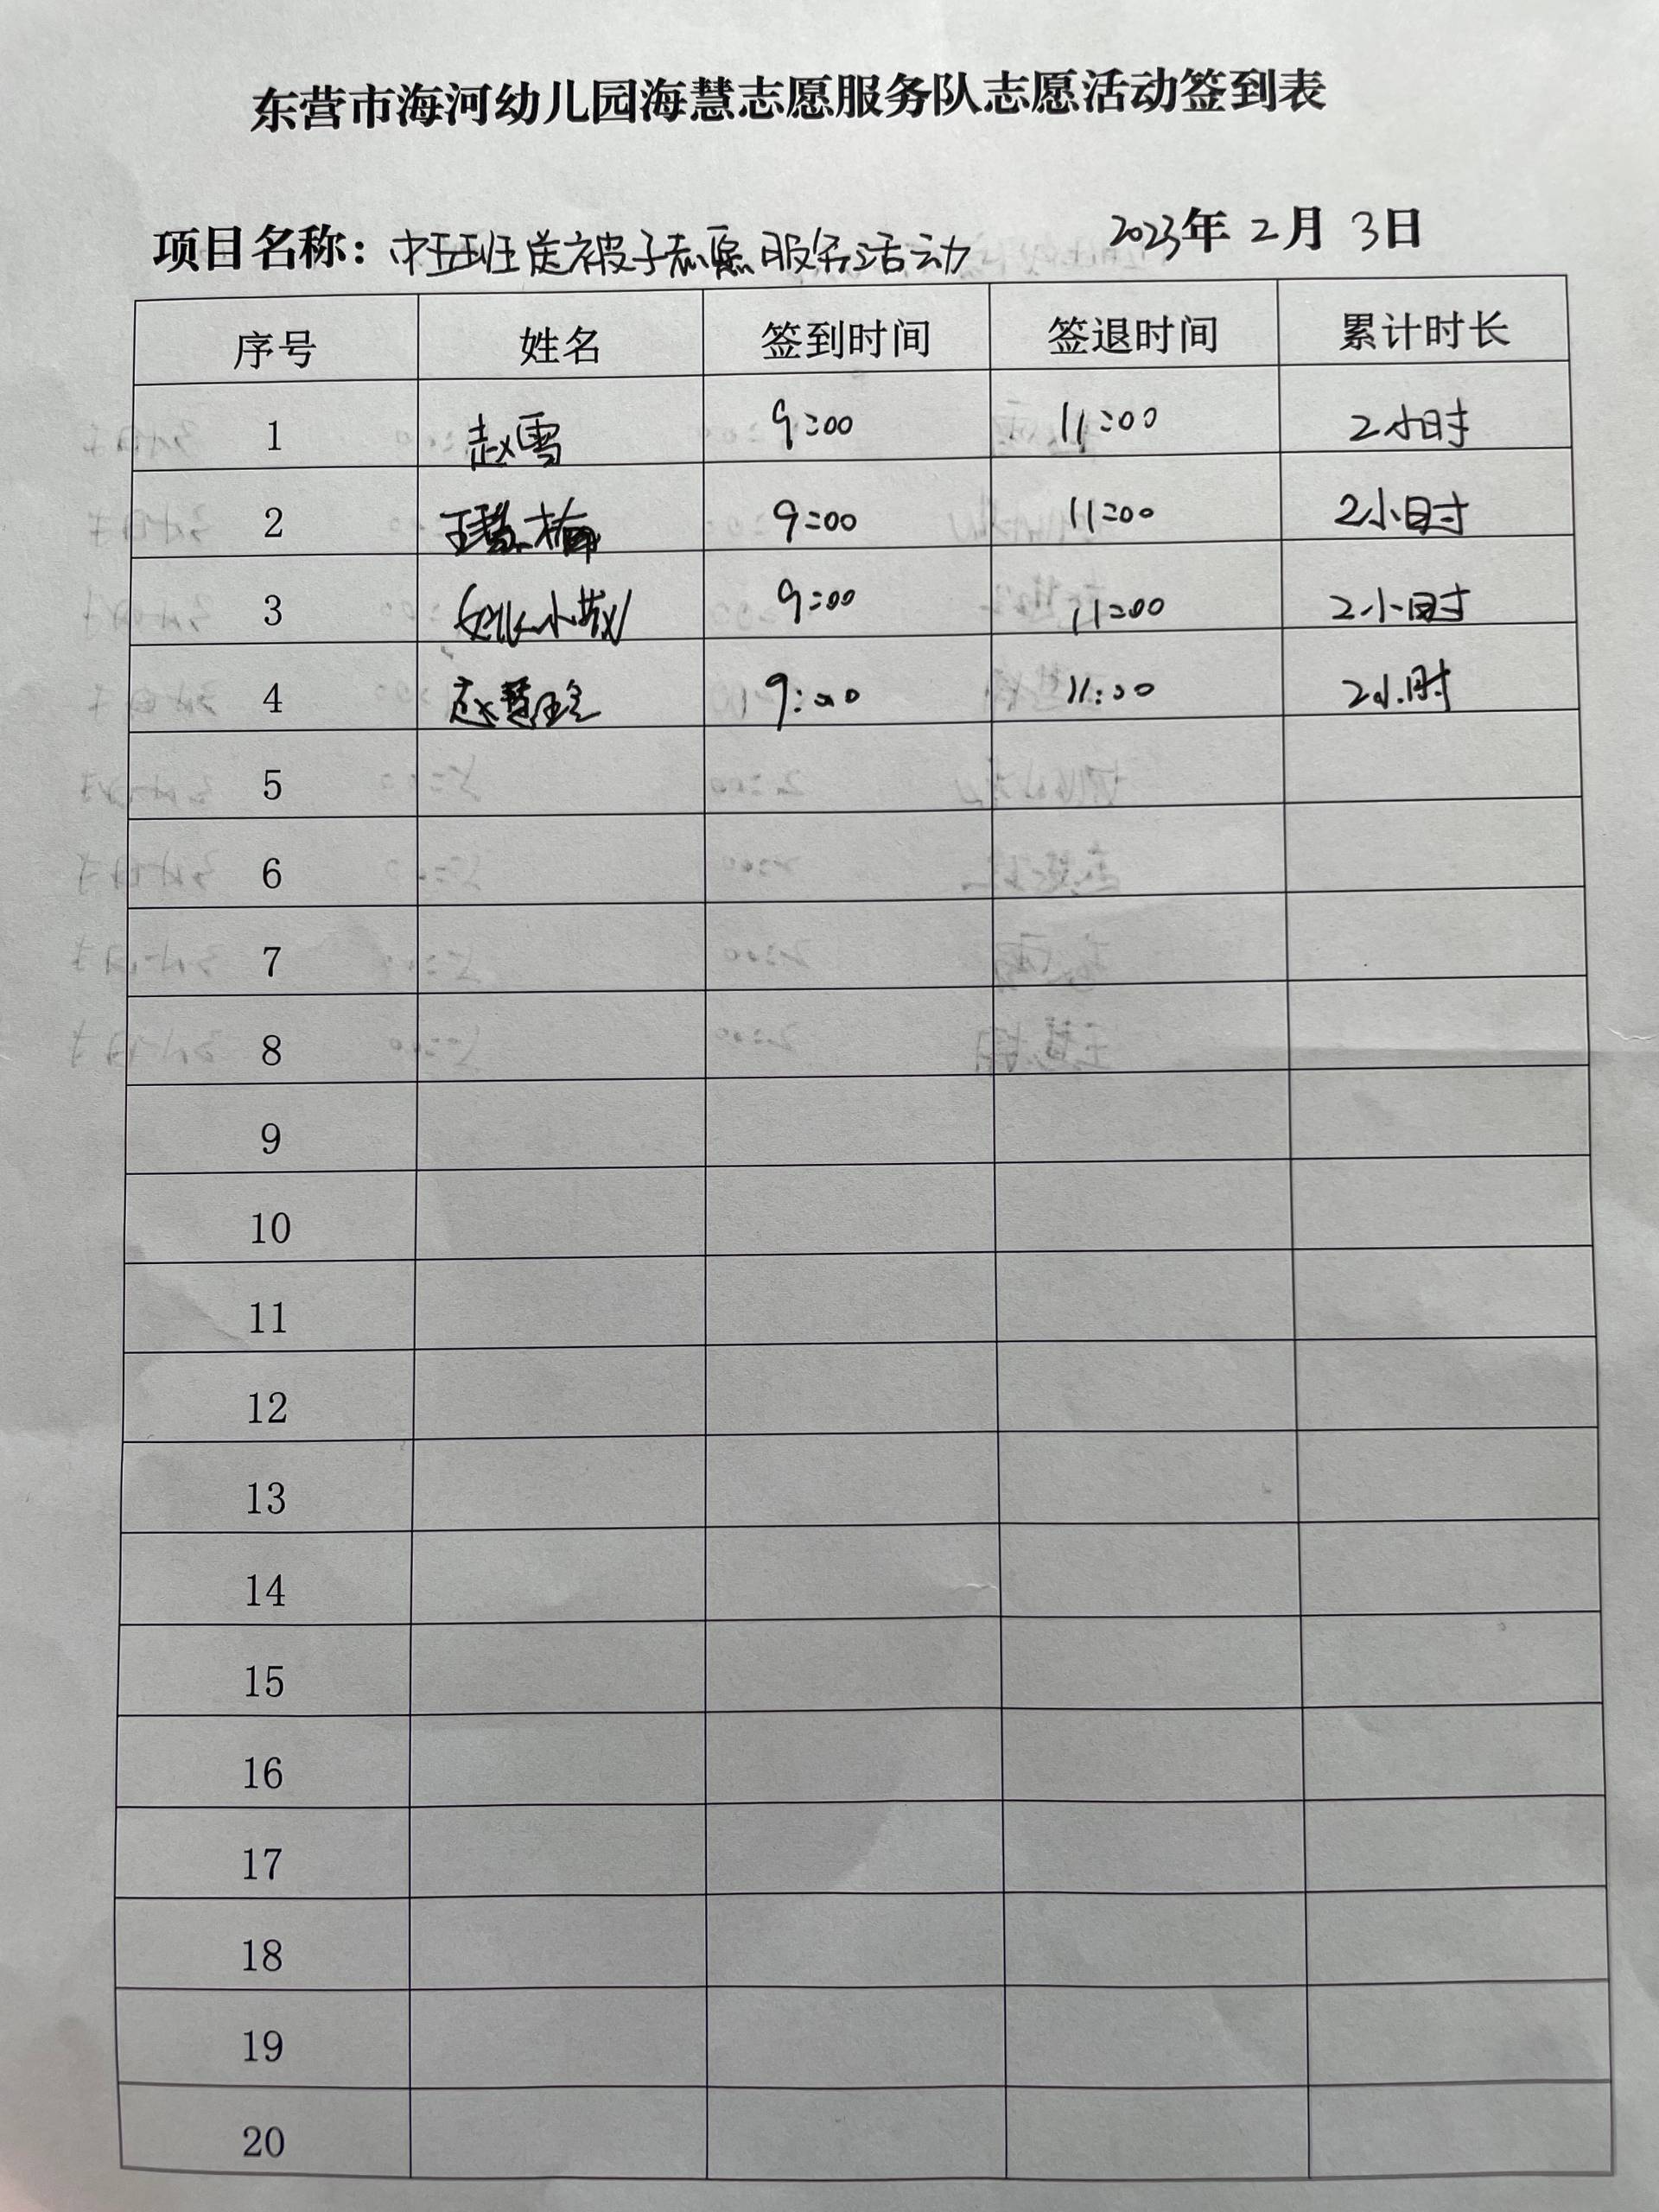 东营市海河幼儿园海慧志愿服务队志愿活动签到表
项目名称：中五班送被子志愿服务活动 2023年 2月 3日
序号 姓名 签到时间 签退时间 累计时长
1 赵雪 9:00 11:00 2小时
2 王慧梅 9:00 11:00 2小时
3 姚小 9:00 11:00 2小时
4 赵慧 9:00 11:00 2小时
5
6
7
8
9
10
11
12
13
14
15
16
17
18
19
20